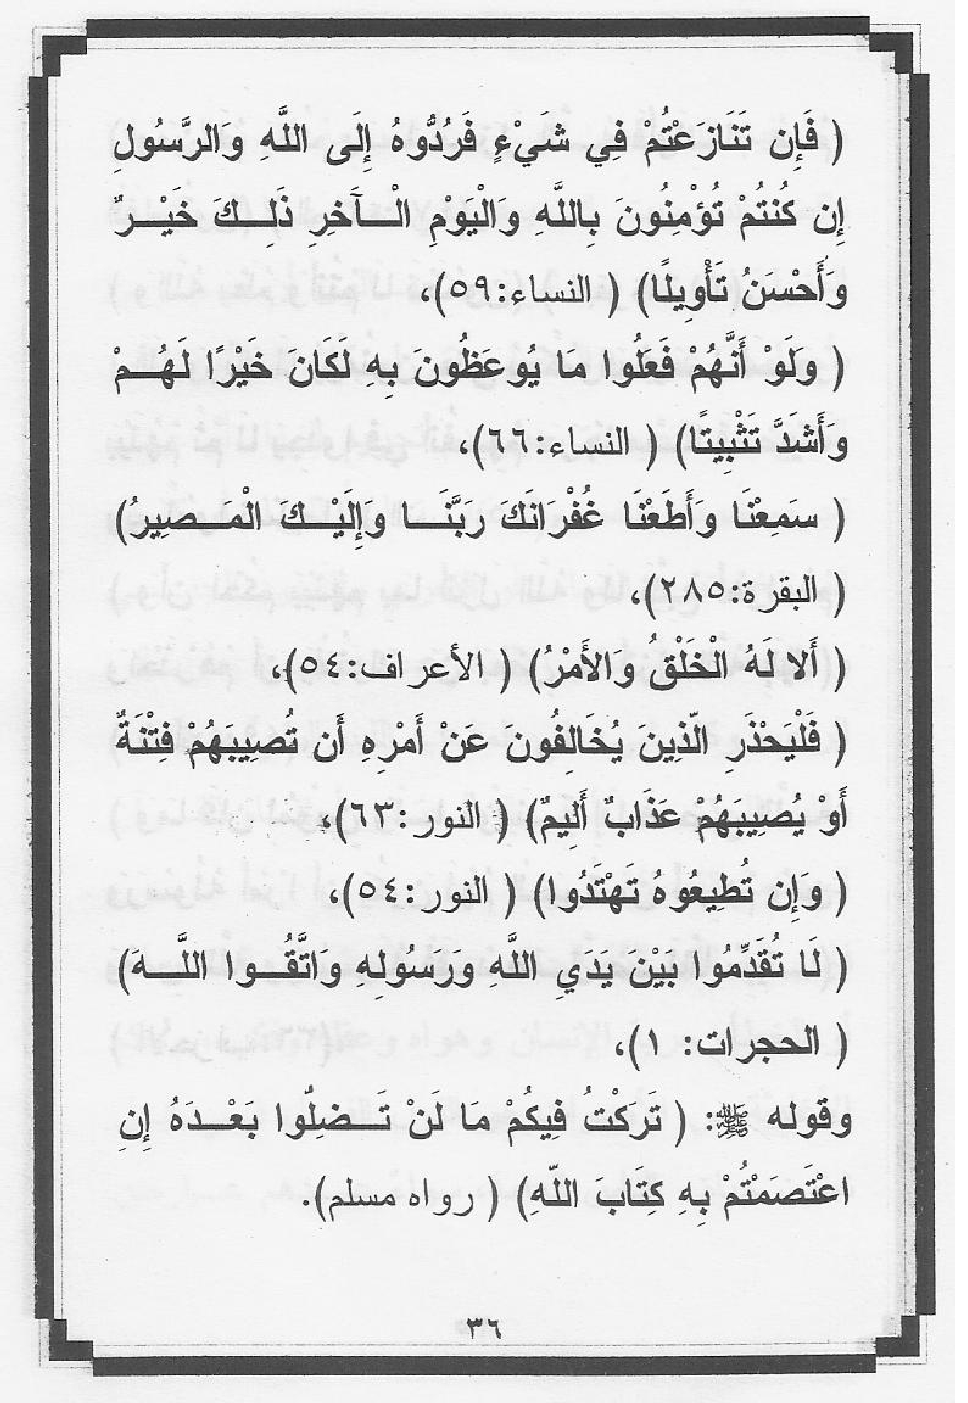 ( فَإِن تَنَازَعْتُمْ فِي شَيْءٍ فَرُدُّوهُ إِلَى اللَّهِ وَالرَّسُولِ
إِن كُنتُمْ تُؤْمِنُونَ بِاللَّهِ وَالْيَوْمِ الْـآخِرِ ذَلِـكَ خَيْـرٌ
وَأَحْسَنُ تَأْوِيلًا) ( النساء:٥٩)،
( وَلَوْ أَنَّهُمْ فَعَلُوا مَا يُوعَظُونَ بِهِ لَكَانَ خَيْرًا لَهُـمْ
وَأَشَدَّ تَثْبِيتًا) ( النساء:٦٦)،
( سَمِعْنَا وَأَطَعْنَا غُفْرَانَكَ رَبَّنَـا وَإِلَيْـكَ الْمَـصِيرُ)
( البقرة:٢٨٥)،
( أَلا لَهُ الْخَلْقُ وَالأَمْرُ) ( الأعراف:٥٤)،
( فَلْيَحْذَرِ الّذِينَ يُخَالِفُونَ عَنْ أَمْرِهِ أَن تُصِيبَهُمْ فِتْنَةٌ
أَوْ يُصِيبَهُمْ عَذَابٌ أَلِيمٌ) ( النور:٦٣)،
( وَإِن تُطِيعُوهُ تَهْتَدُوا) ( النور:٥٤)،
( لَا تُقَدِّمُوا بَيْنَ يَدَيِ اللَّهِ وَرَسُولِهِ وَاتَّقُـوا اللَّـهَ)
( الحجرات: ١)،
وقوله ﷺ: ( تَرَكْتُ فِيكُمْ مَا لَنْ تَـضِلّوا بَعْـدَهُ إِنِ
اعْتَصَمْتُمْ بِهِ كِتَابَ اللّهِ) ( رواه مسلم).
٣٦